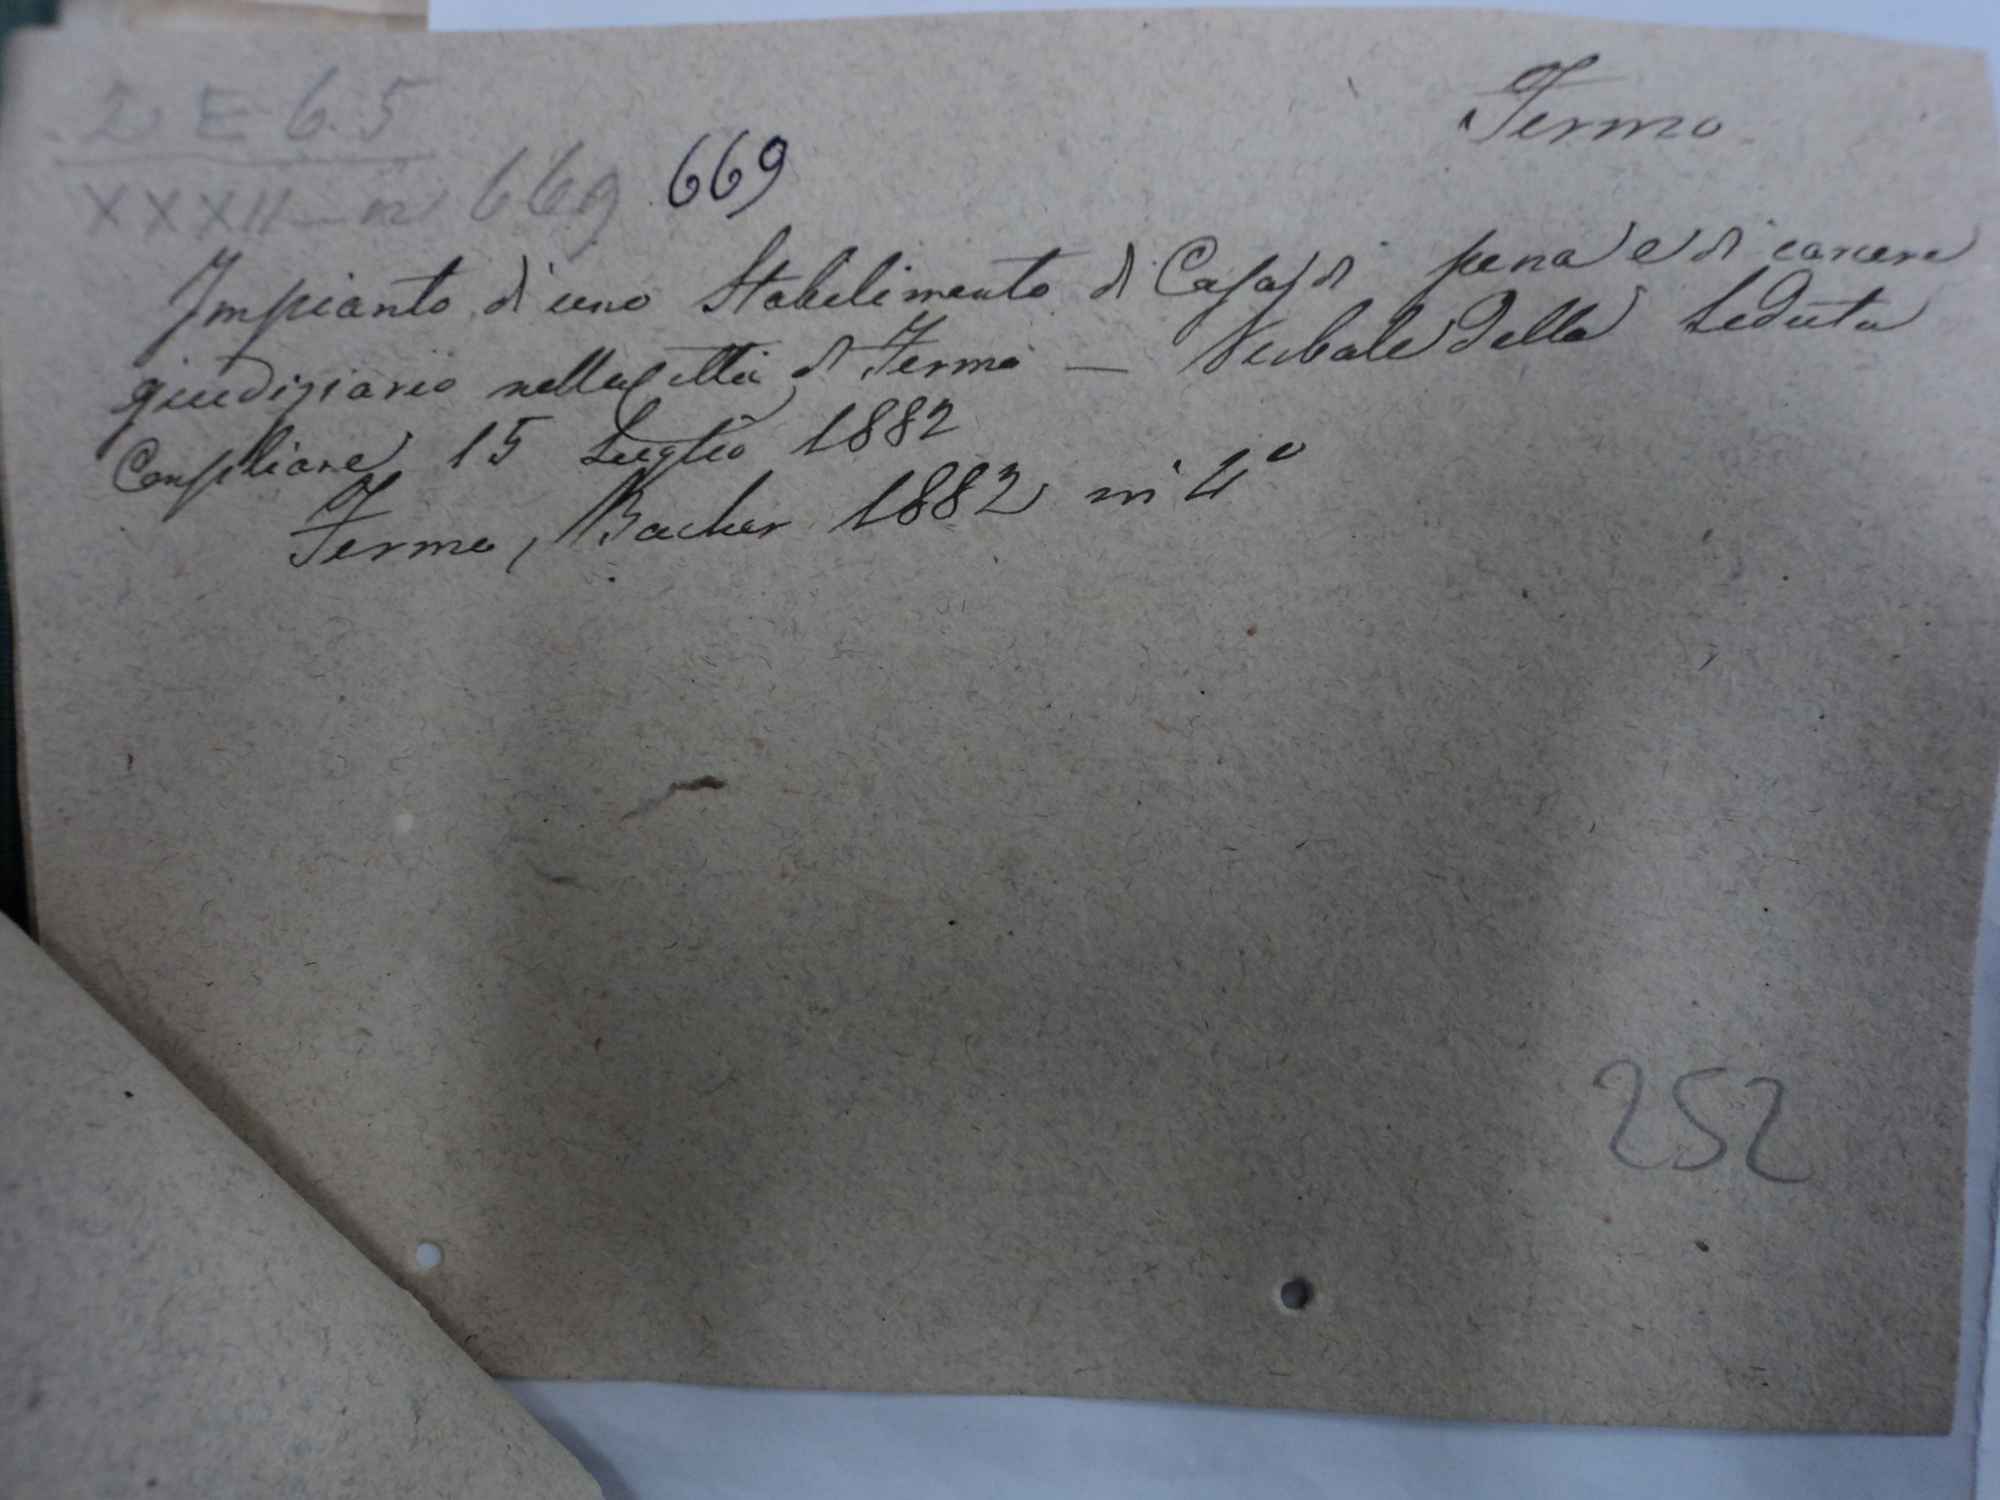 Fermo
2 E 6.5
XXXII - n 669 669
Impianto di uno Stabilimento di Casa di pena e di carcere
giudiziario nella Città di Fermo — Verbale della Seduta
Consiliare 15 Luglio 1882
Fermo, Bacher 1882 in 4°
252